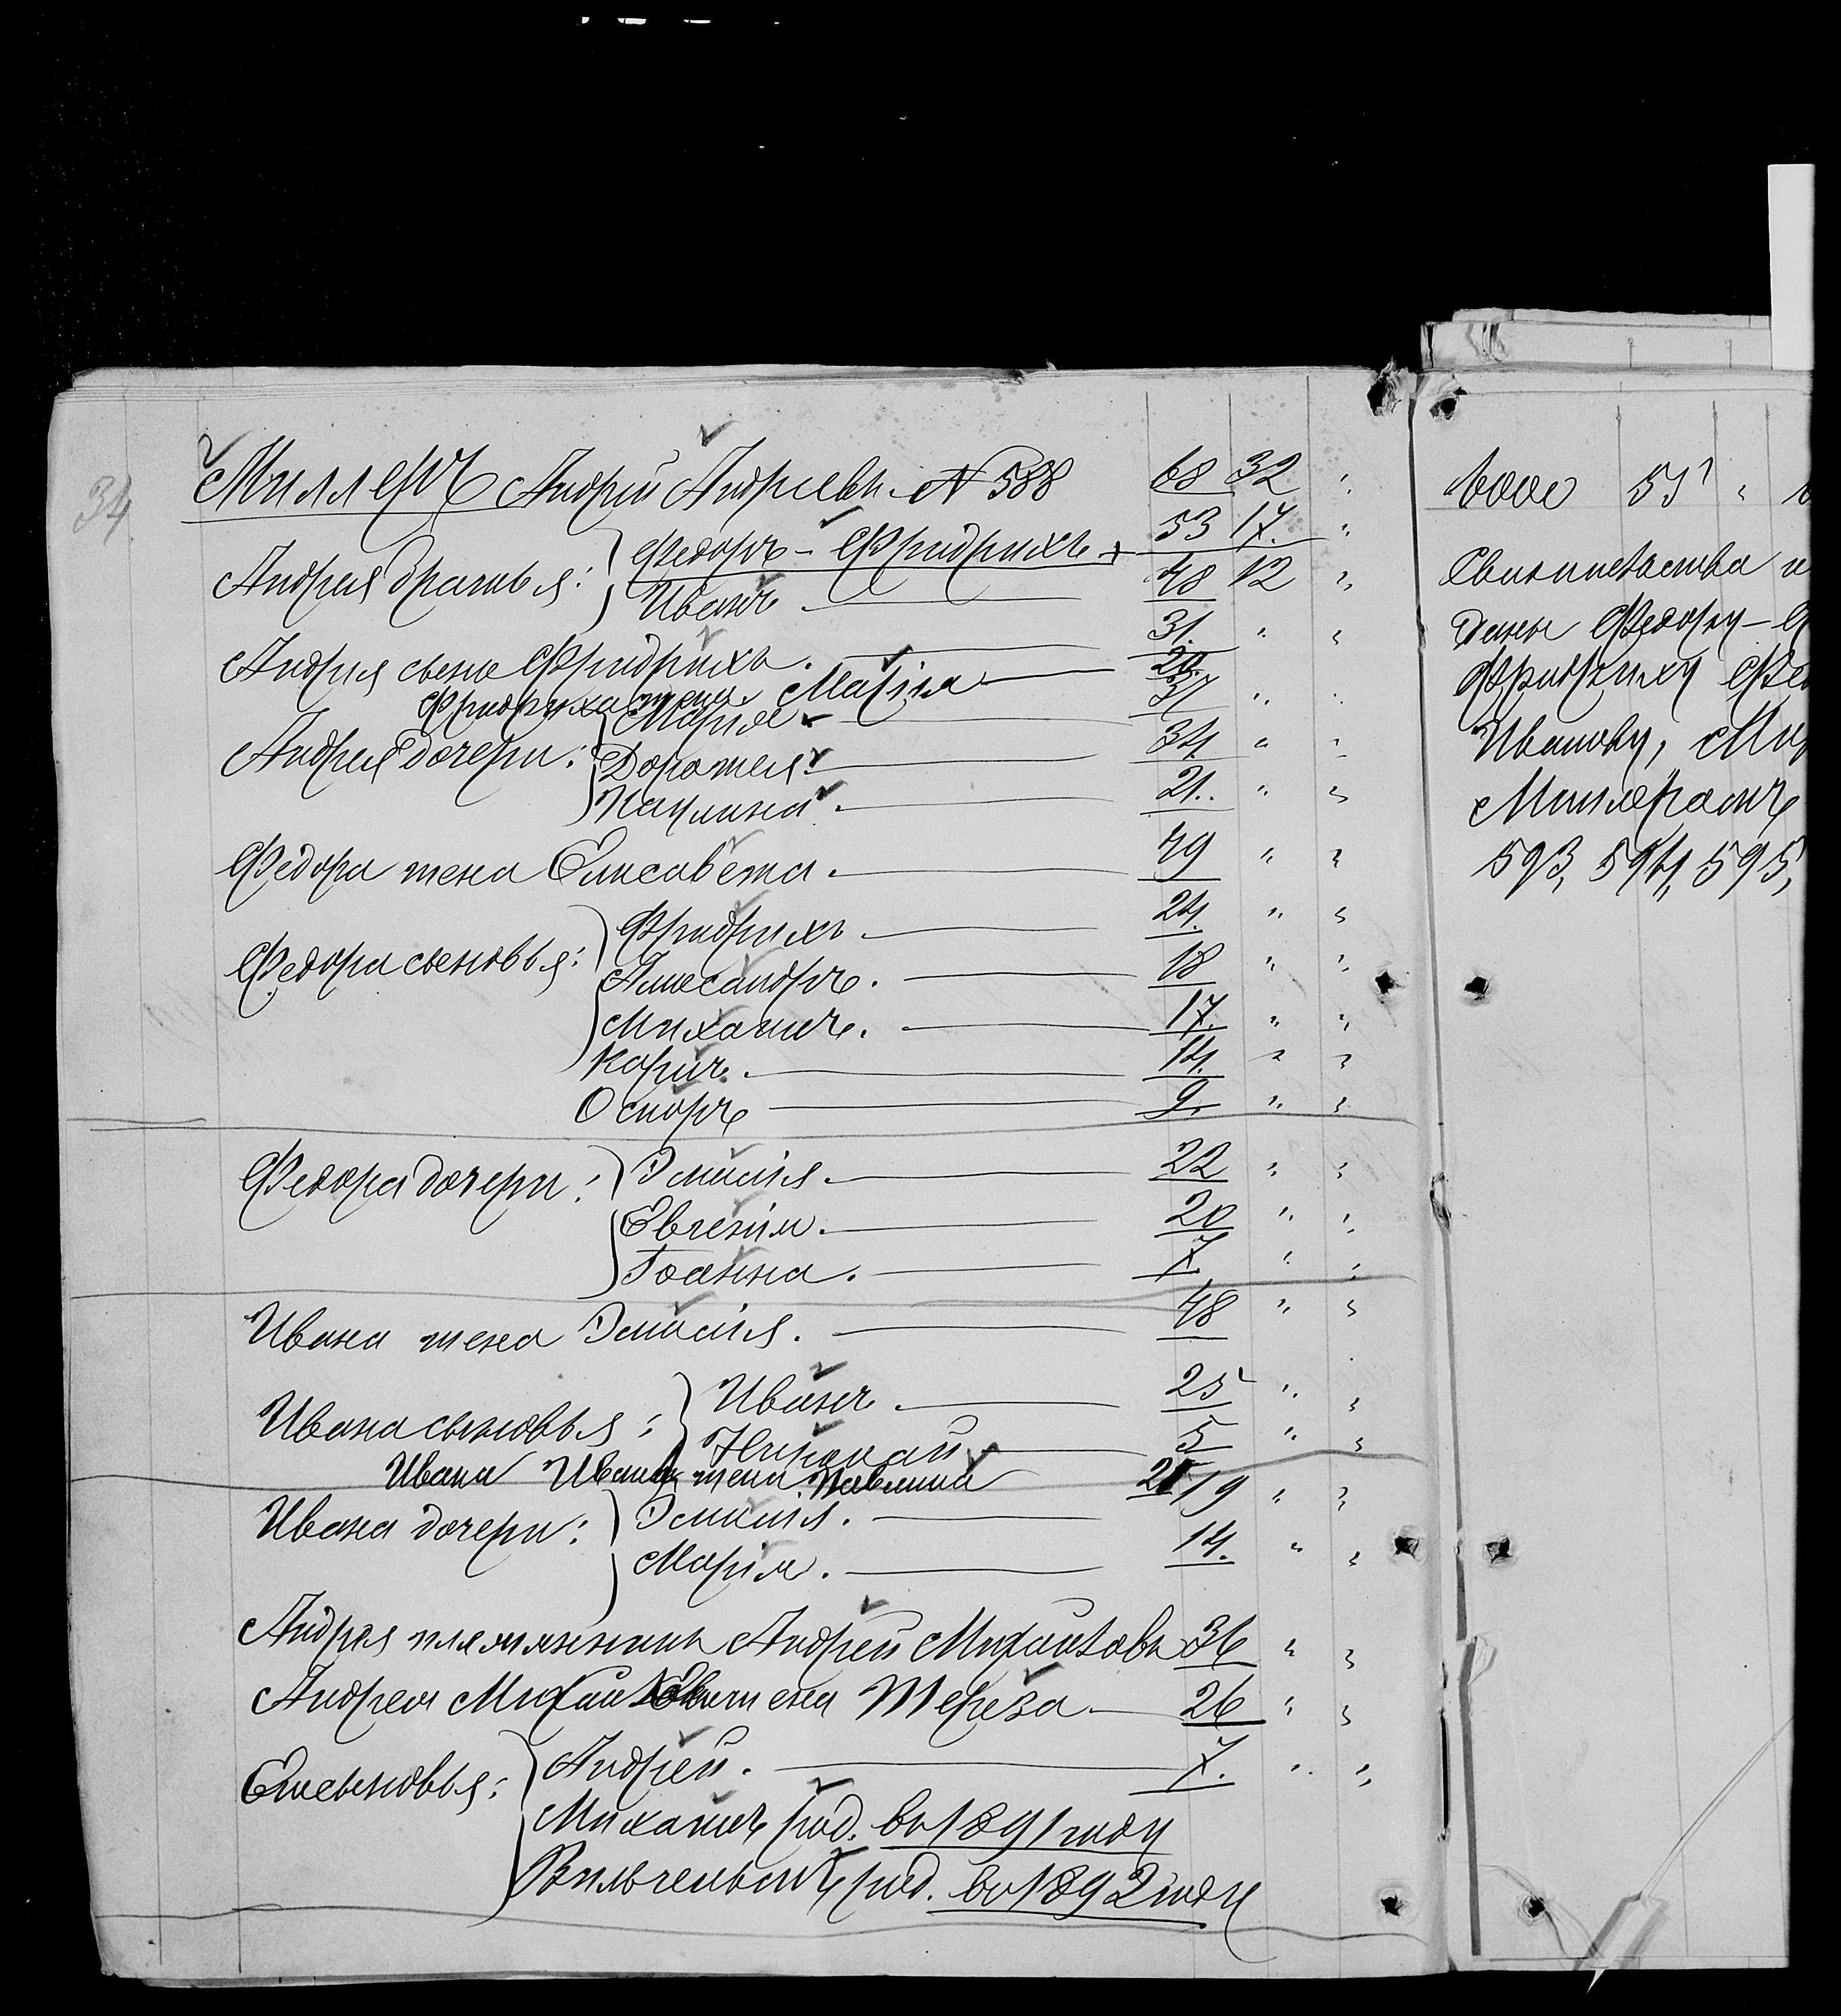 34
Миллеръ Андрей Андреевъ. № 588 68 32 "
Андрея братья: Федоръ-Фридрихъ 53 17. "
Иванъ 48 12 "
Андрея сынъ Фридрихъ. 31. " "
Фридриха жена Марія 20.
Андрея дочери: Марія 37 " "
Доротея 34. " "
Паулина 21. " "
Федора жена Елисавета. 49 " "
Федора сыновья: Фридрихъ. 24. " "
Александръ. 18 " "
Михаилъ. 17. " "
Карлъ. 14. " "
Оскаръ 9. " "
Федора дочери: Эмилія. 22 " "
Евгенія. 20 " "
Іоанна. 7. " "
Ивана жена Эмилія. 48 " "
Ивана сыновья: Иванъ. 25 " "
Николай 5 " "
Ивана Иванова жена Павлина 21
Ивана дочери: Эмилія. 19 " "
Марія. 14. " "
Андрея племянникъ Андрей Михайловъ 36 " "
Андрея Михайлова жена Тереза 26 " "
Его сыновья: Андрей. 7. " "
Михаилъ род. въ 1891 году
Вильгельмъ род. въ 1892 году
Свидѣтельства
даны Федору-
Фридриху
Иванову,
Миллерамъ
593, 594, 595,